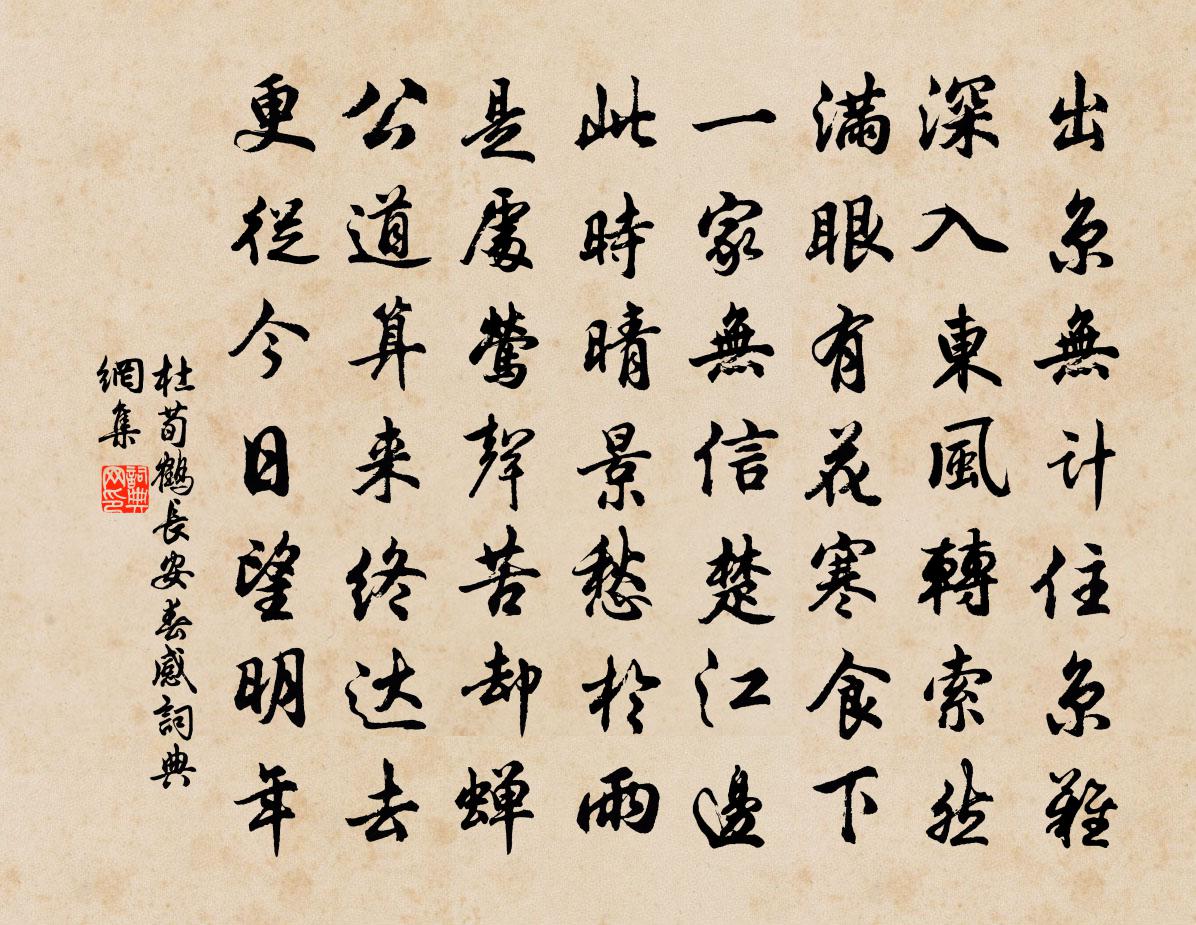 出京無計住京難
深入東風轉索然
滿眼有花寒食下
一家無信楚江邊
此時晴景愁於雨
是處鶯聲苦却蟬
公道算来终达去
更從今日望明年
杜荀鶴長安春感詞典
網集
詞典
网印